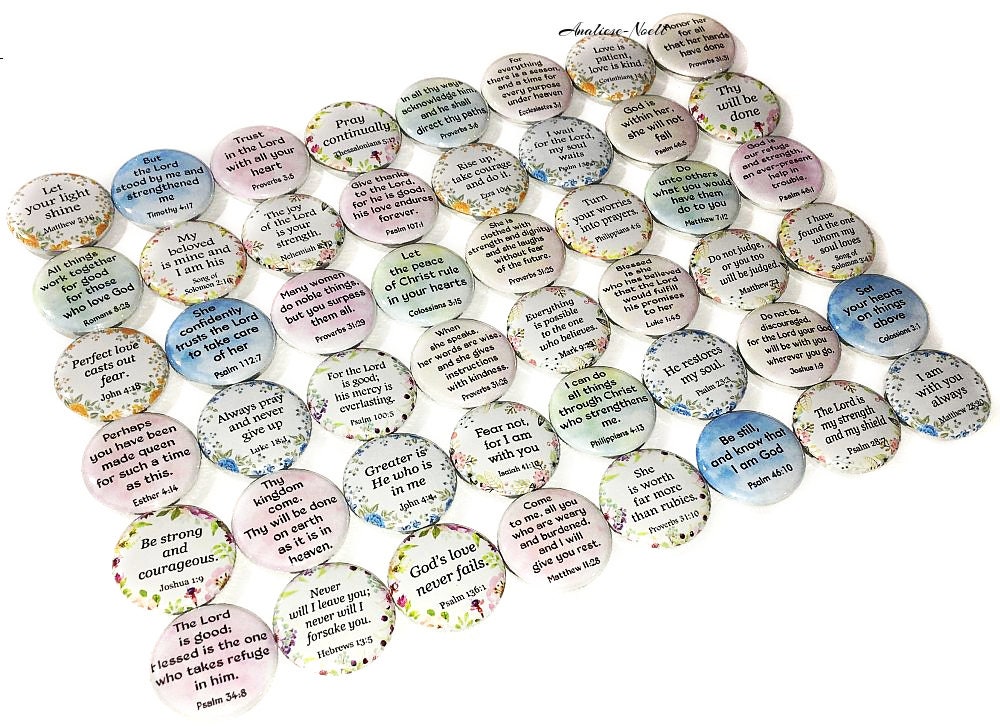 Analiese-Noelle
Let
your light
shine
Matthew 5:16
But
the Lord
stood by me and
strengthened
me
Timothy 4:17
Trust
in the Lord
with all your
heart
Proverbs 3:5
Pray
continually
Thessalonians 5:17
In all thy ways
acknowledge him
and he shall
direct thy paths
Proverbs 3:6
For
everything
there is a season,
and a time for
every purpose
under heaven
Ecclesiastes 3:1
Love is
patient,
love is kind.
Corinthians
Honor her
for all
that her hands
have done
Proverbs 31:31
All things
work together
for good
for those
who love God
Romans 8:28
My
beloved
is mine and
I am his
Song of
Solomon 2:16
The joy
of the Lord
is your
strength.
Nehemiah
Give thanks
to the Lord,
for he is good;
his love endures
forever.
Psalm 107:1
Rise up,
take courage
and do it.
Ezra 10:4
I wait
for the Lord,
my soul
waits
Psalm
God is
within her
she will not
fall
Psalm 46:5
Thy
will be
done
Perfect love
casts out
fear.
John 4:18
She
confidently
trusts the Lord
to take care
of her
Psalm 112:7
Many women
do noble things,
but you surpass
them all.
Proverbs 31:29
Let
the peace
of Christ rule
in your hearts
Colossians 3:15
She is
clothed with
strength and dignity
and she laughs
without fear
of the future.
Proverbs 31:25
Turn
your worries
into prayers.
Philippians 4:6
Do
unto others
what you would
have them
do to you
Matthew 7:12
God is
our refuge
and strength,
an ever-present
help in
trouble.
Psalm 46:1
Perhaps
you have been
made queen
for such a time
as this.
Esther 4:14
Always pray
and never
give up
Luke 18:1
For the Lord
is good;
his mercy is
everlasting.
Psalm 100:5
When
she speaks,
her words are wise,
and she gives
instructions
with kindness.
Proverbs 31:26
Everything
is possible
to the one
who believes.
Mark 9:23
Blessed
is she
who has believed
that the Lord
would fulfill
his promises
to her
Luke 1:45
Do not judge,
or you too
will be judged.
Matthew 7:1
I have
found the one
whom my
soul loves
Song of
Solomon 3:4
Be strong
and
courageous.
Joshua 1:9
Thy
kingdom
come.
Thy will be done
on earth
as it is in
heaven.
Greater is
He who is
in me
John 4:4
Fear not,
for I am
with you
Isaiah 41:10
I can do
all things
through Christ
who strengthens
me.
Philippians 4:13
He restores
my soul.
Psalm 23:3
Do not be
discouraged,
for the Lord your God
will be with you
wherever you go.
Joshua 1:9
Set
your hearts
on things
above
Colossians 3:1
The Lord
is good;
blessed is the one
who takes refuge
in him.
Psalm 34:8
Never
will I leave you;
never will I
forsake you.
Hebrews 13:5
God's love
never fails.
Psalm 136:1
Come
to me, all you
who are weary
and burdened,
and I will
give you rest.
Matthew 11:28
She
is worth
far more
than rubies.
Proverbs 31:10
Be still,
and know that
I am God
Psalm 46:10
The Lord is
my strength
and my shield
Psalm 28:7
I am
with you
always
Matthew 28:20